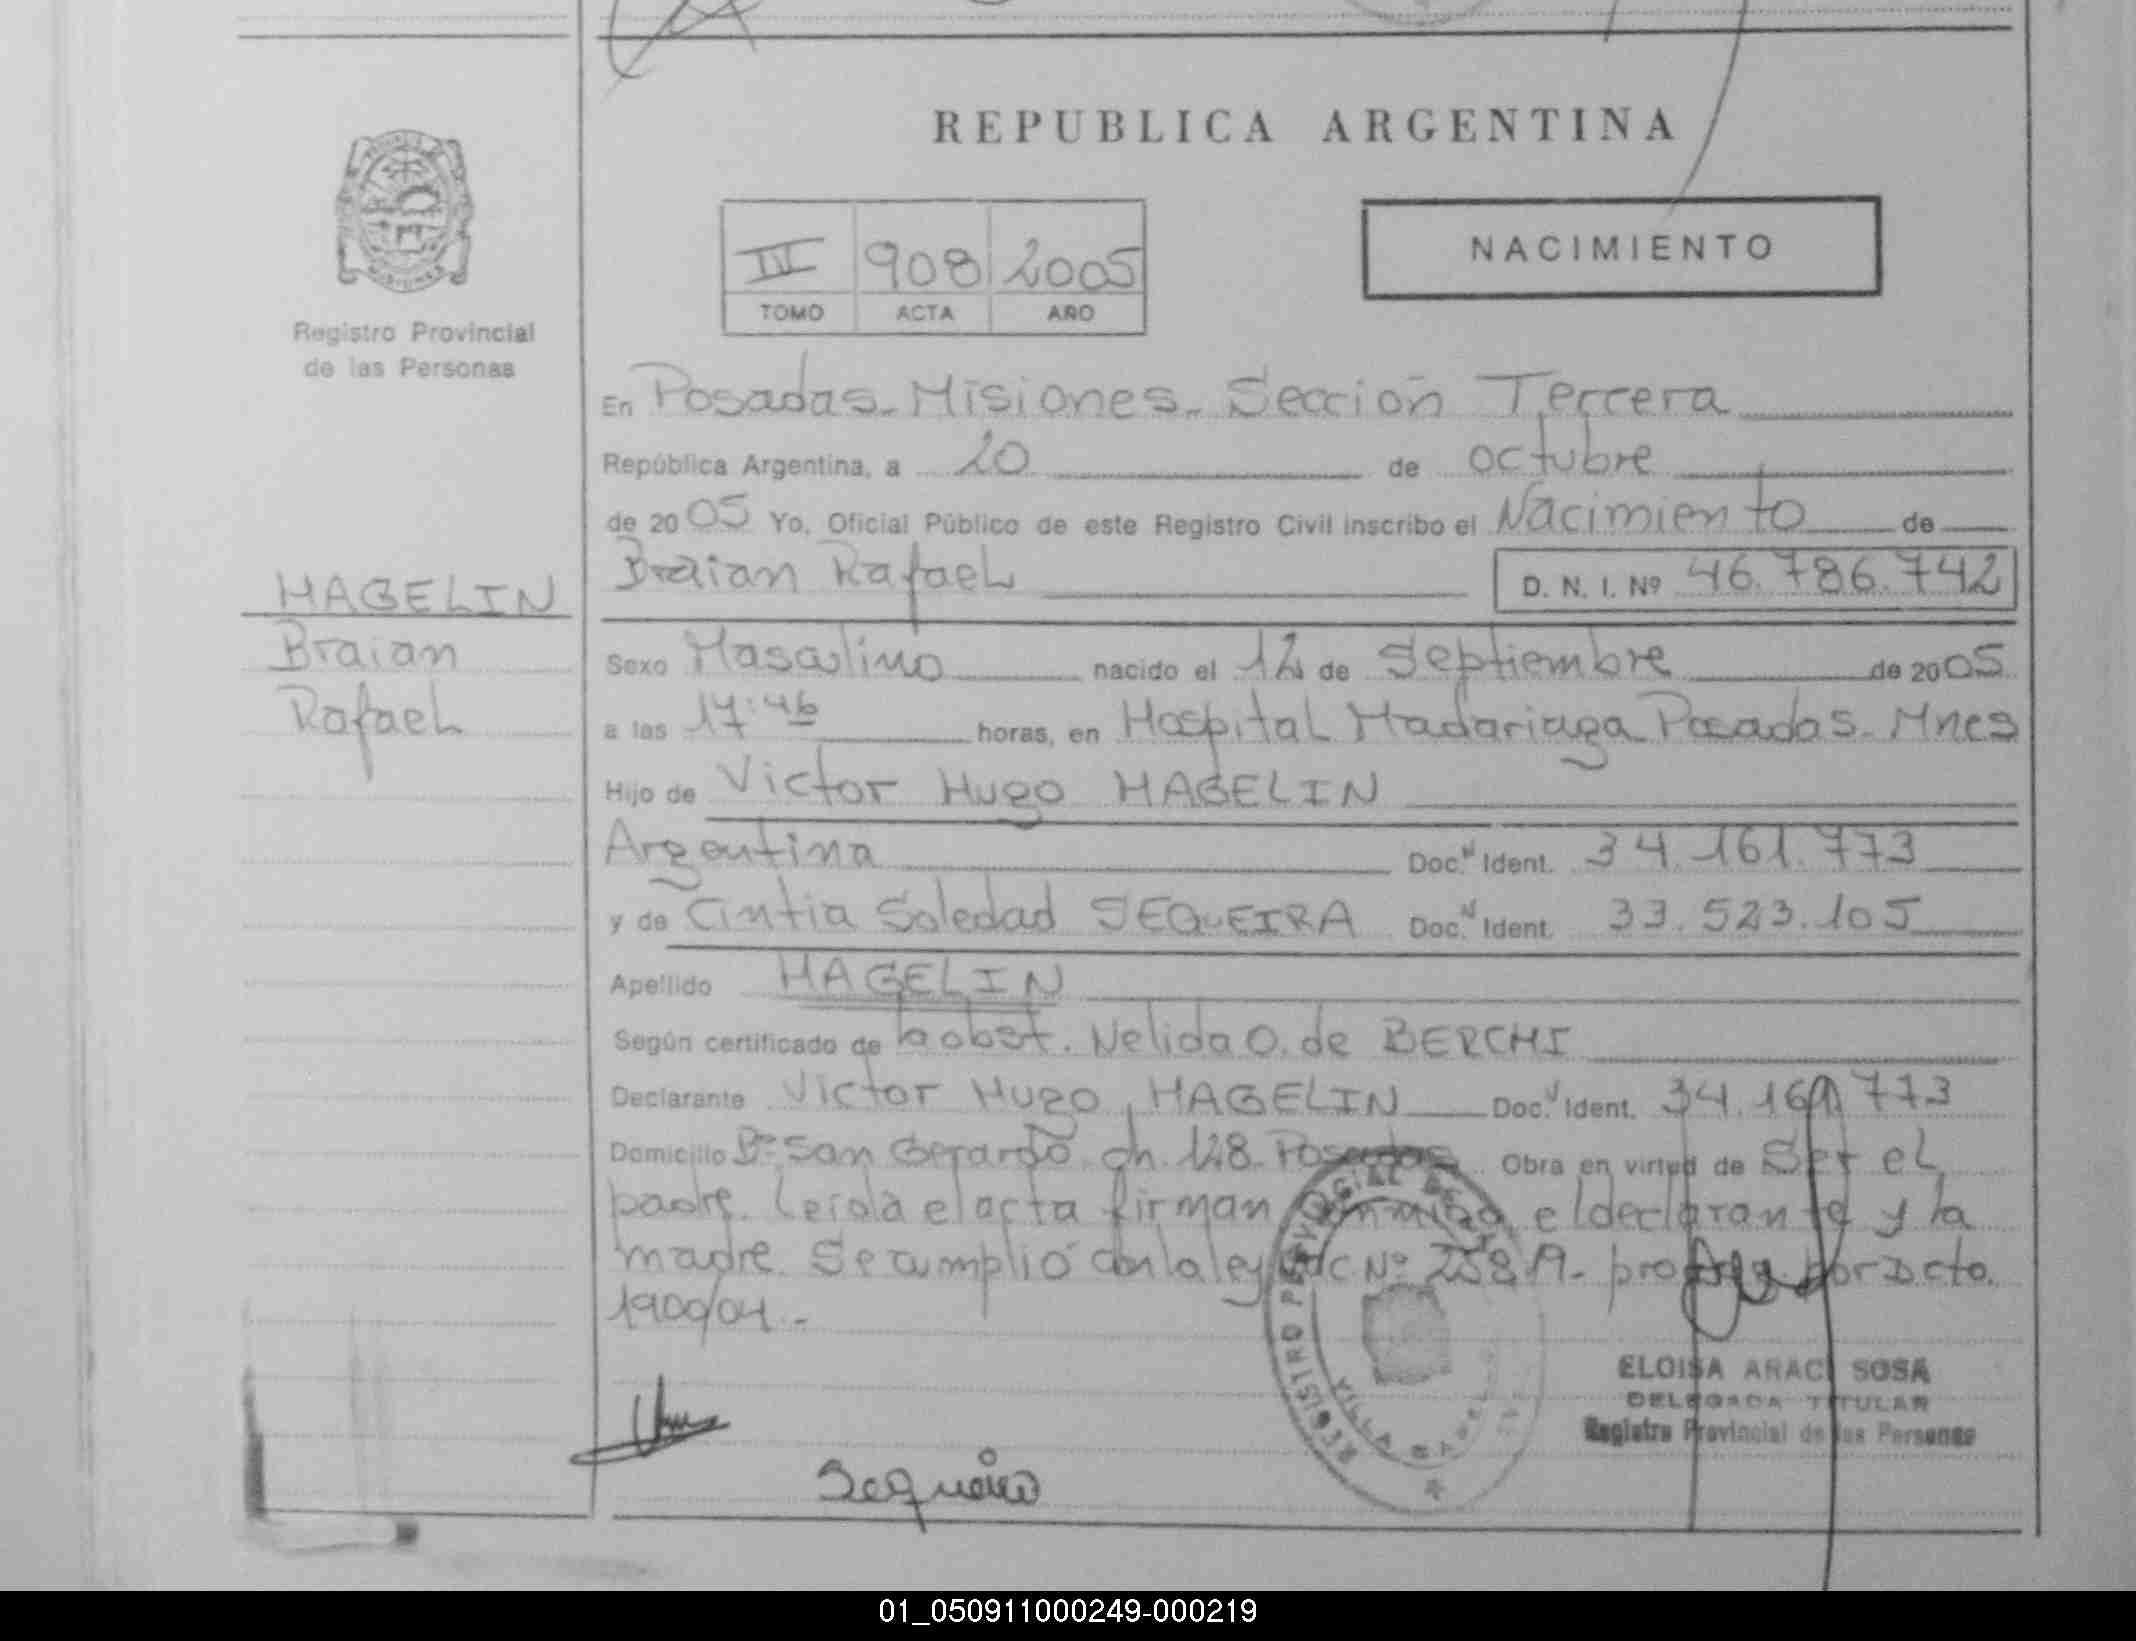 REPUBLICA ARGENTINA
Registro Provincial
de las Personas
III 908 2005
TOMO ACTA AÑO
NACIMIENTO
En Posadas - Misiones - Sección Tercera
República Argentina, a 20 de octubre
de 2005 Yo, Oficial Público de este Registro Civil inscribo el Nacimiento de
HAGELIN
Braian
Rafael
Braian Rafael D. N. I. Nº 46.786.742
Sexo Masculino nacido el 12 de Septiembre de 2005
a las 17:46 horas, en Hospital Madariaga Posadas - Mnes
Hijo de Victor Hugo HAGELIN
Argentina Doc. Ident. 34.161.773
y de Cintia Soledad SEQUEIRA Doc. Ident. 33.523.105
Apellido HAGELIN
Según certificado de la obst. Nelida O. de BERCHI
Declarante Victor Hugo HAGELIN Doc. Ident. 34.161.773
Domicilio Bº San Gerardo ch. 128 - Posadas Obra en virtud de Ser el
padre. Leida el acta firman conmigo el declarante y la
madre. Se cumplió con la ley Nº 25819 - por Dcto.
1900/04 -
REGISTRO PROVINCIAL DE
VILLA
Sequeira
ELOISA ARACI SOSA
DELEGADA TITULAR
Registro Provincial de las Personas
01_050911000249-000219